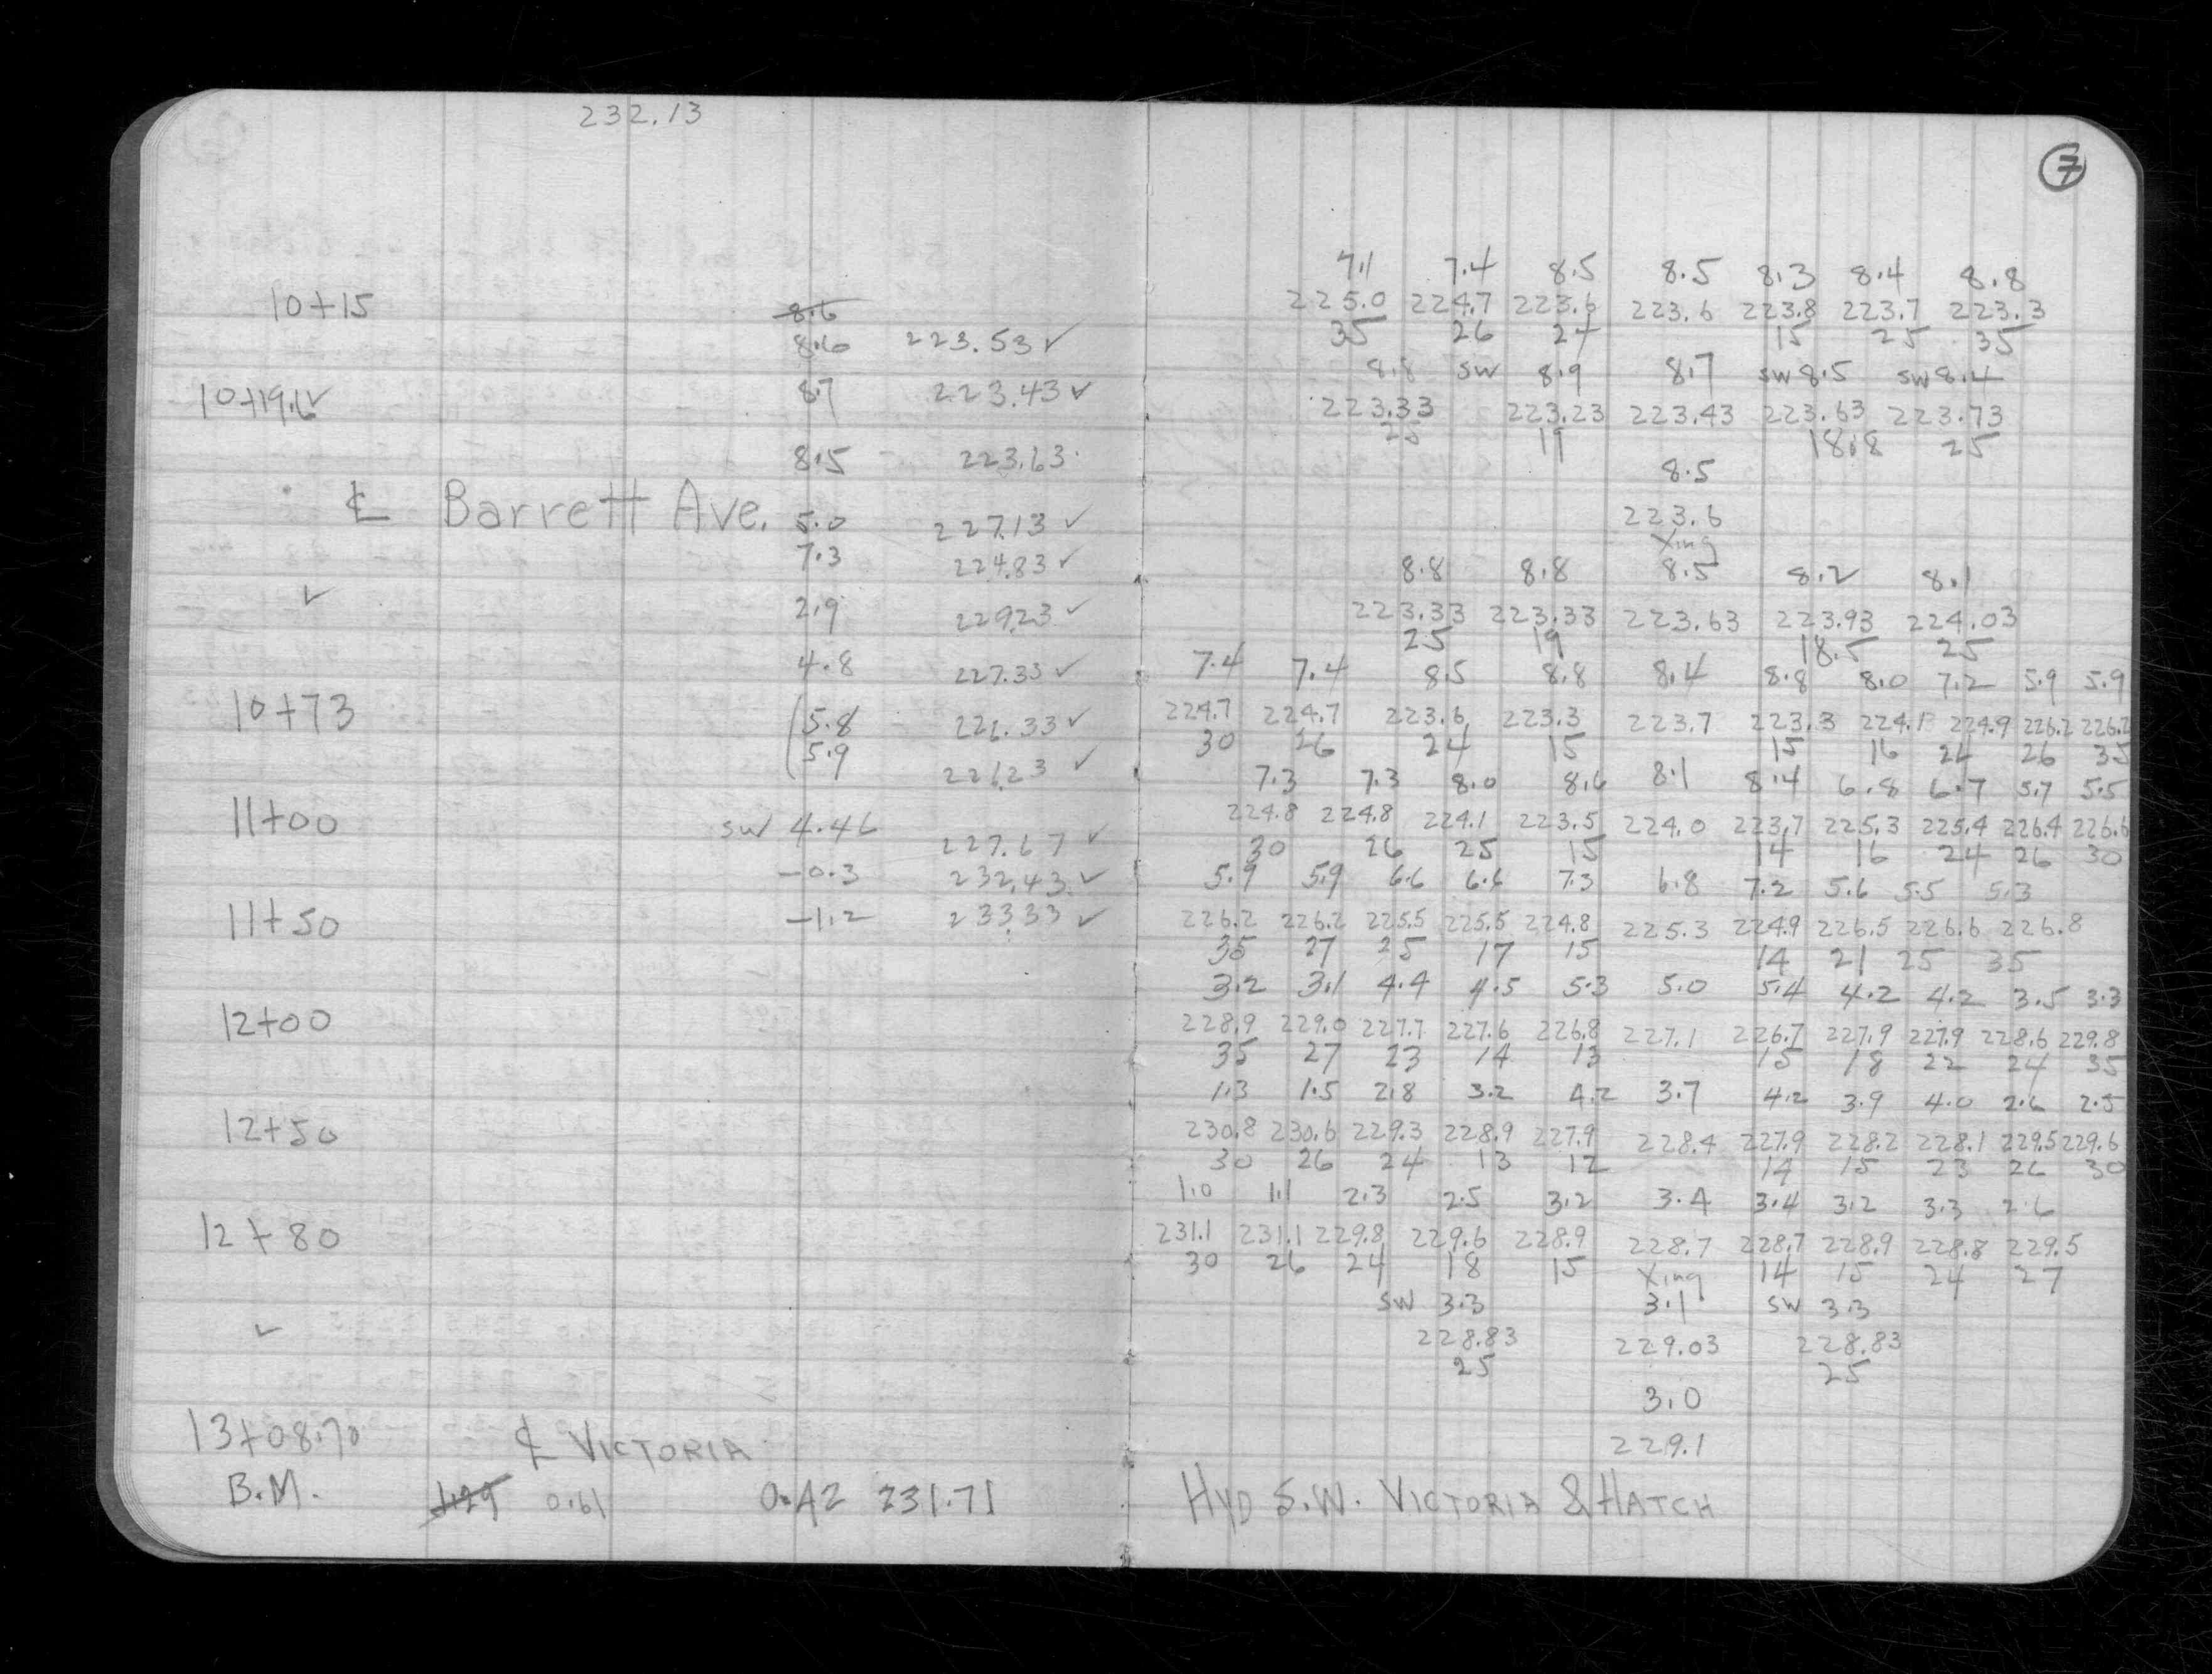 232.13
⑦
7.1 7.4 8.5 8.5 8.3 8.4 8.8
10+15 8.6 225.0 224.7 223.6 223.6 223.8 223.7 223.3
8.6 223.53 ✓ 35 26 24 15 25 35
8.8 SW 8.9 8.7 SW 8.5 SW 8.4
10+19.6 ✓ 8.7 223.43 ✓ 223.33 223.23 223.43 223.63 223.73
25 19 18.8 25
8.5 223.63 8.5
℄ Barrett Ave. 5.0 227.13 ✓ 223.6
7.3 224.83 ✓ Xing
8.8 8.8 8.5 8.2 8.1
✓ 2.9 229.23 ✓ 223.33 223.33 223.63 223.93 224.03
25 19 18.5 25
4.8 227.33 ✓ 7.4 7.4 8.5 8.8 8.4 8.8 8.0 7.2 5.9 5.9
10+73 (5.8 226.33 ✓ 224.7 224.7 223.6 223.3 223.7 223.3 224.13 224.9 226.2 226.2
5.9 226.23 ✓ 30 26 24 15 15 16 24 26 35
7.3 7.3 8.0 8.6 8.1 8.4 6.8 6.7 5.7 5.5
11+00 SW 4.46 227.67 ✓ 224.8 224.8 224.1 223.5 224.0 223.7 225.3 225.4 226.4 226.6
30 26 25 15 14 16 24 26 30
-0.3 232.43 ✓ 5.9 5.9 6.6 6.6 7.3 6.8 7.2 5.6 5.5 5.3
11+50 -1.2 233.33 ✓ 226.2 226.2 225.5 225.5 224.8 225.3 224.9 226.5 226.6 226.8
35 27 25 17 15 14 21 25 35
3.2 3.1 4.4 4.5 5.3 5.0 5.4 4.2 4.2 3.5 3.3
12+00 228.9 229.0 227.7 227.6 226.8 227.1 226.7 227.9 227.9 228.6 229.8
35 27 23 14 13 15 18 22 24 35
1.3 1.5 2.8 3.2 4.2 3.7 4.2 3.9 4.0 2.6 2.5
12+50 230.8 230.6 229.3 228.9 227.9 228.4 227.9 228.2 228.1 229.5 229.6
30 26 24 13 12 14 15 23 26 30
1.0 1.1 2.3 2.5 3.2 3.4 3.4 3.2 3.3 2.6
12+80 231.1 231.1 229.8 229.6 228.9 228.7 228.7 228.9 228.8 229.5
30 26 24 18 15 Xing 14 15 24 27
SW 3.3 3.1 SW 3.3
✓ 228.83 229.03 228.83
25 25
3.0
13+08.70 ℄ VICTORIA 229.1
B.M. 1.29 0.61 0.42 231.71 HYD S.W. VICTORIA & HATCH